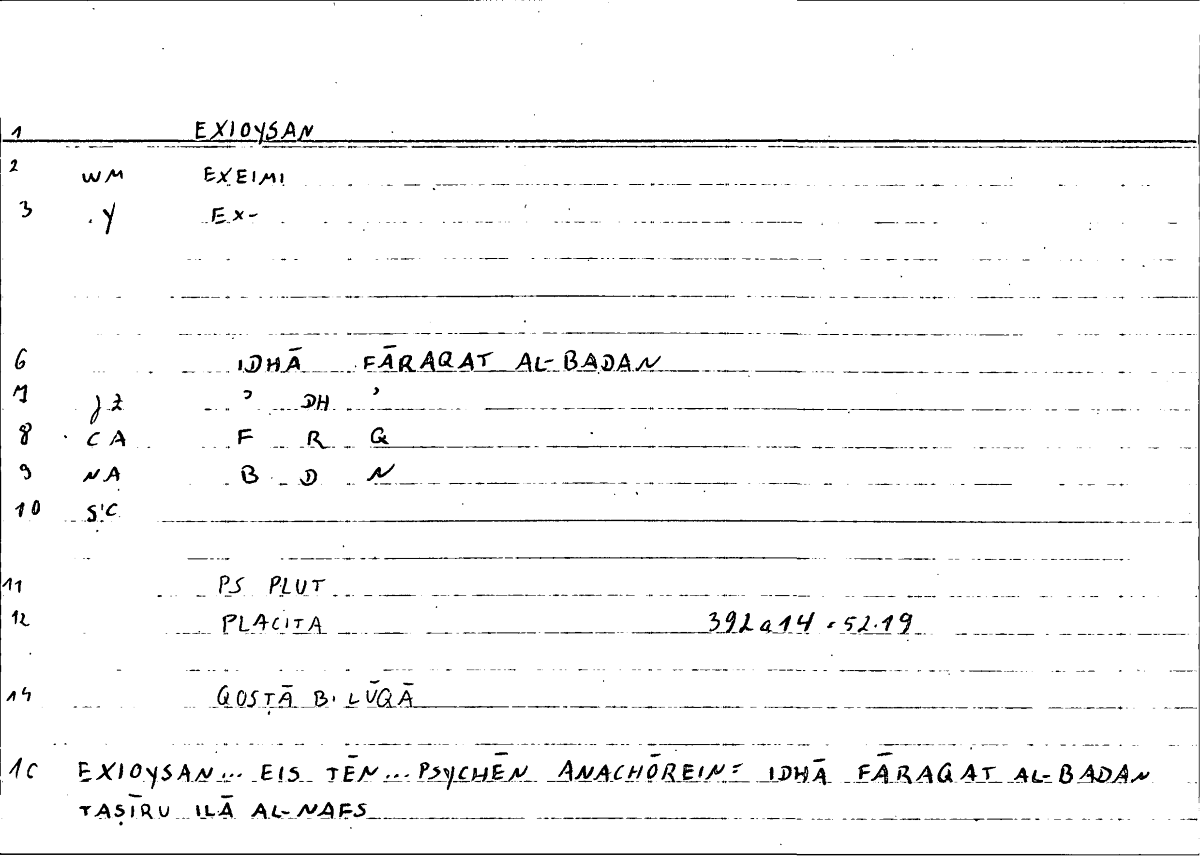 1 EXIOYSAN
2 WM EXEIMI
3 .Y EX-
6 IDHĀ FĀRAQAT AL-BADAN
7 JŻ ʾ DH ʾ
8 CA F R Q
9 NA B D N
10 S'C
11 PS PLUT
12 PLACITA 392a14 = 52.19
14 QOSṬĀ B. LŪQĀ
1C EXIOYSAN... EIS TĒN... PSYCHĒN ANACHŌREIN = IDHĀ FĀRAQAT AL-BADAN
TAṢĪRU ILĀ AL-NAFS